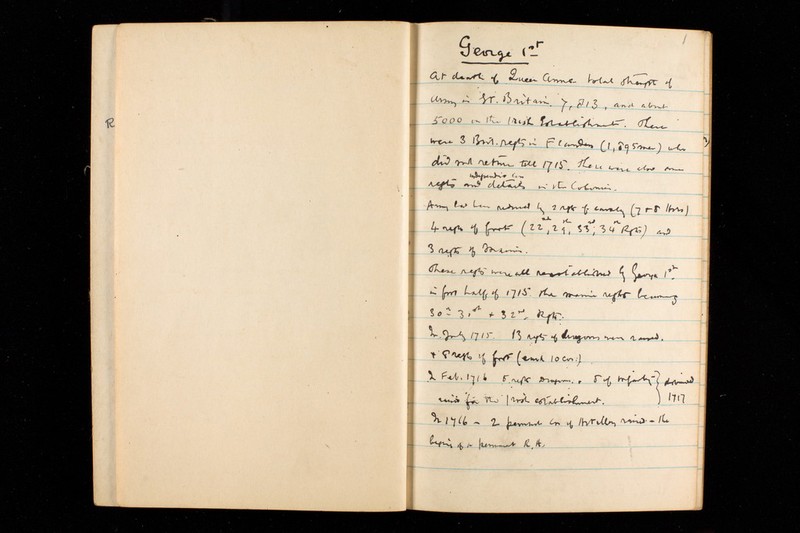 R
1
George 1st
At death of Queen Anne total strength of
Army in Gt. Britain 7,813, and about
5000 on the Irish Establishment. There
were 3 Brit. regts in Flanders (1,895 men) who
did not return till 1715. There were also some
independent cos
regts and details in the Colonies.
Army had been reduced by 2 regts of cavalry (7 + 8 Horse)
4 regts of foot (22nd, 29th, 33rd, 34th Regts) and
3 regts of Marines.
These regts were all reestablished by George 1st
in first half of 1715 the marine regts becoming
30th 31st + 32nd Regts.
In July 1715 13 regts of dragoons were raised.
+ 8 regts of foot (each 10 cos:)
In Feb. 1716 5 regts Dragoons + 5 of infantry disbanded
raised for the Irish establishment. 1717
In 1716 - 2 permanent cos of Artillery raised - the
begins of a permanent R.A.